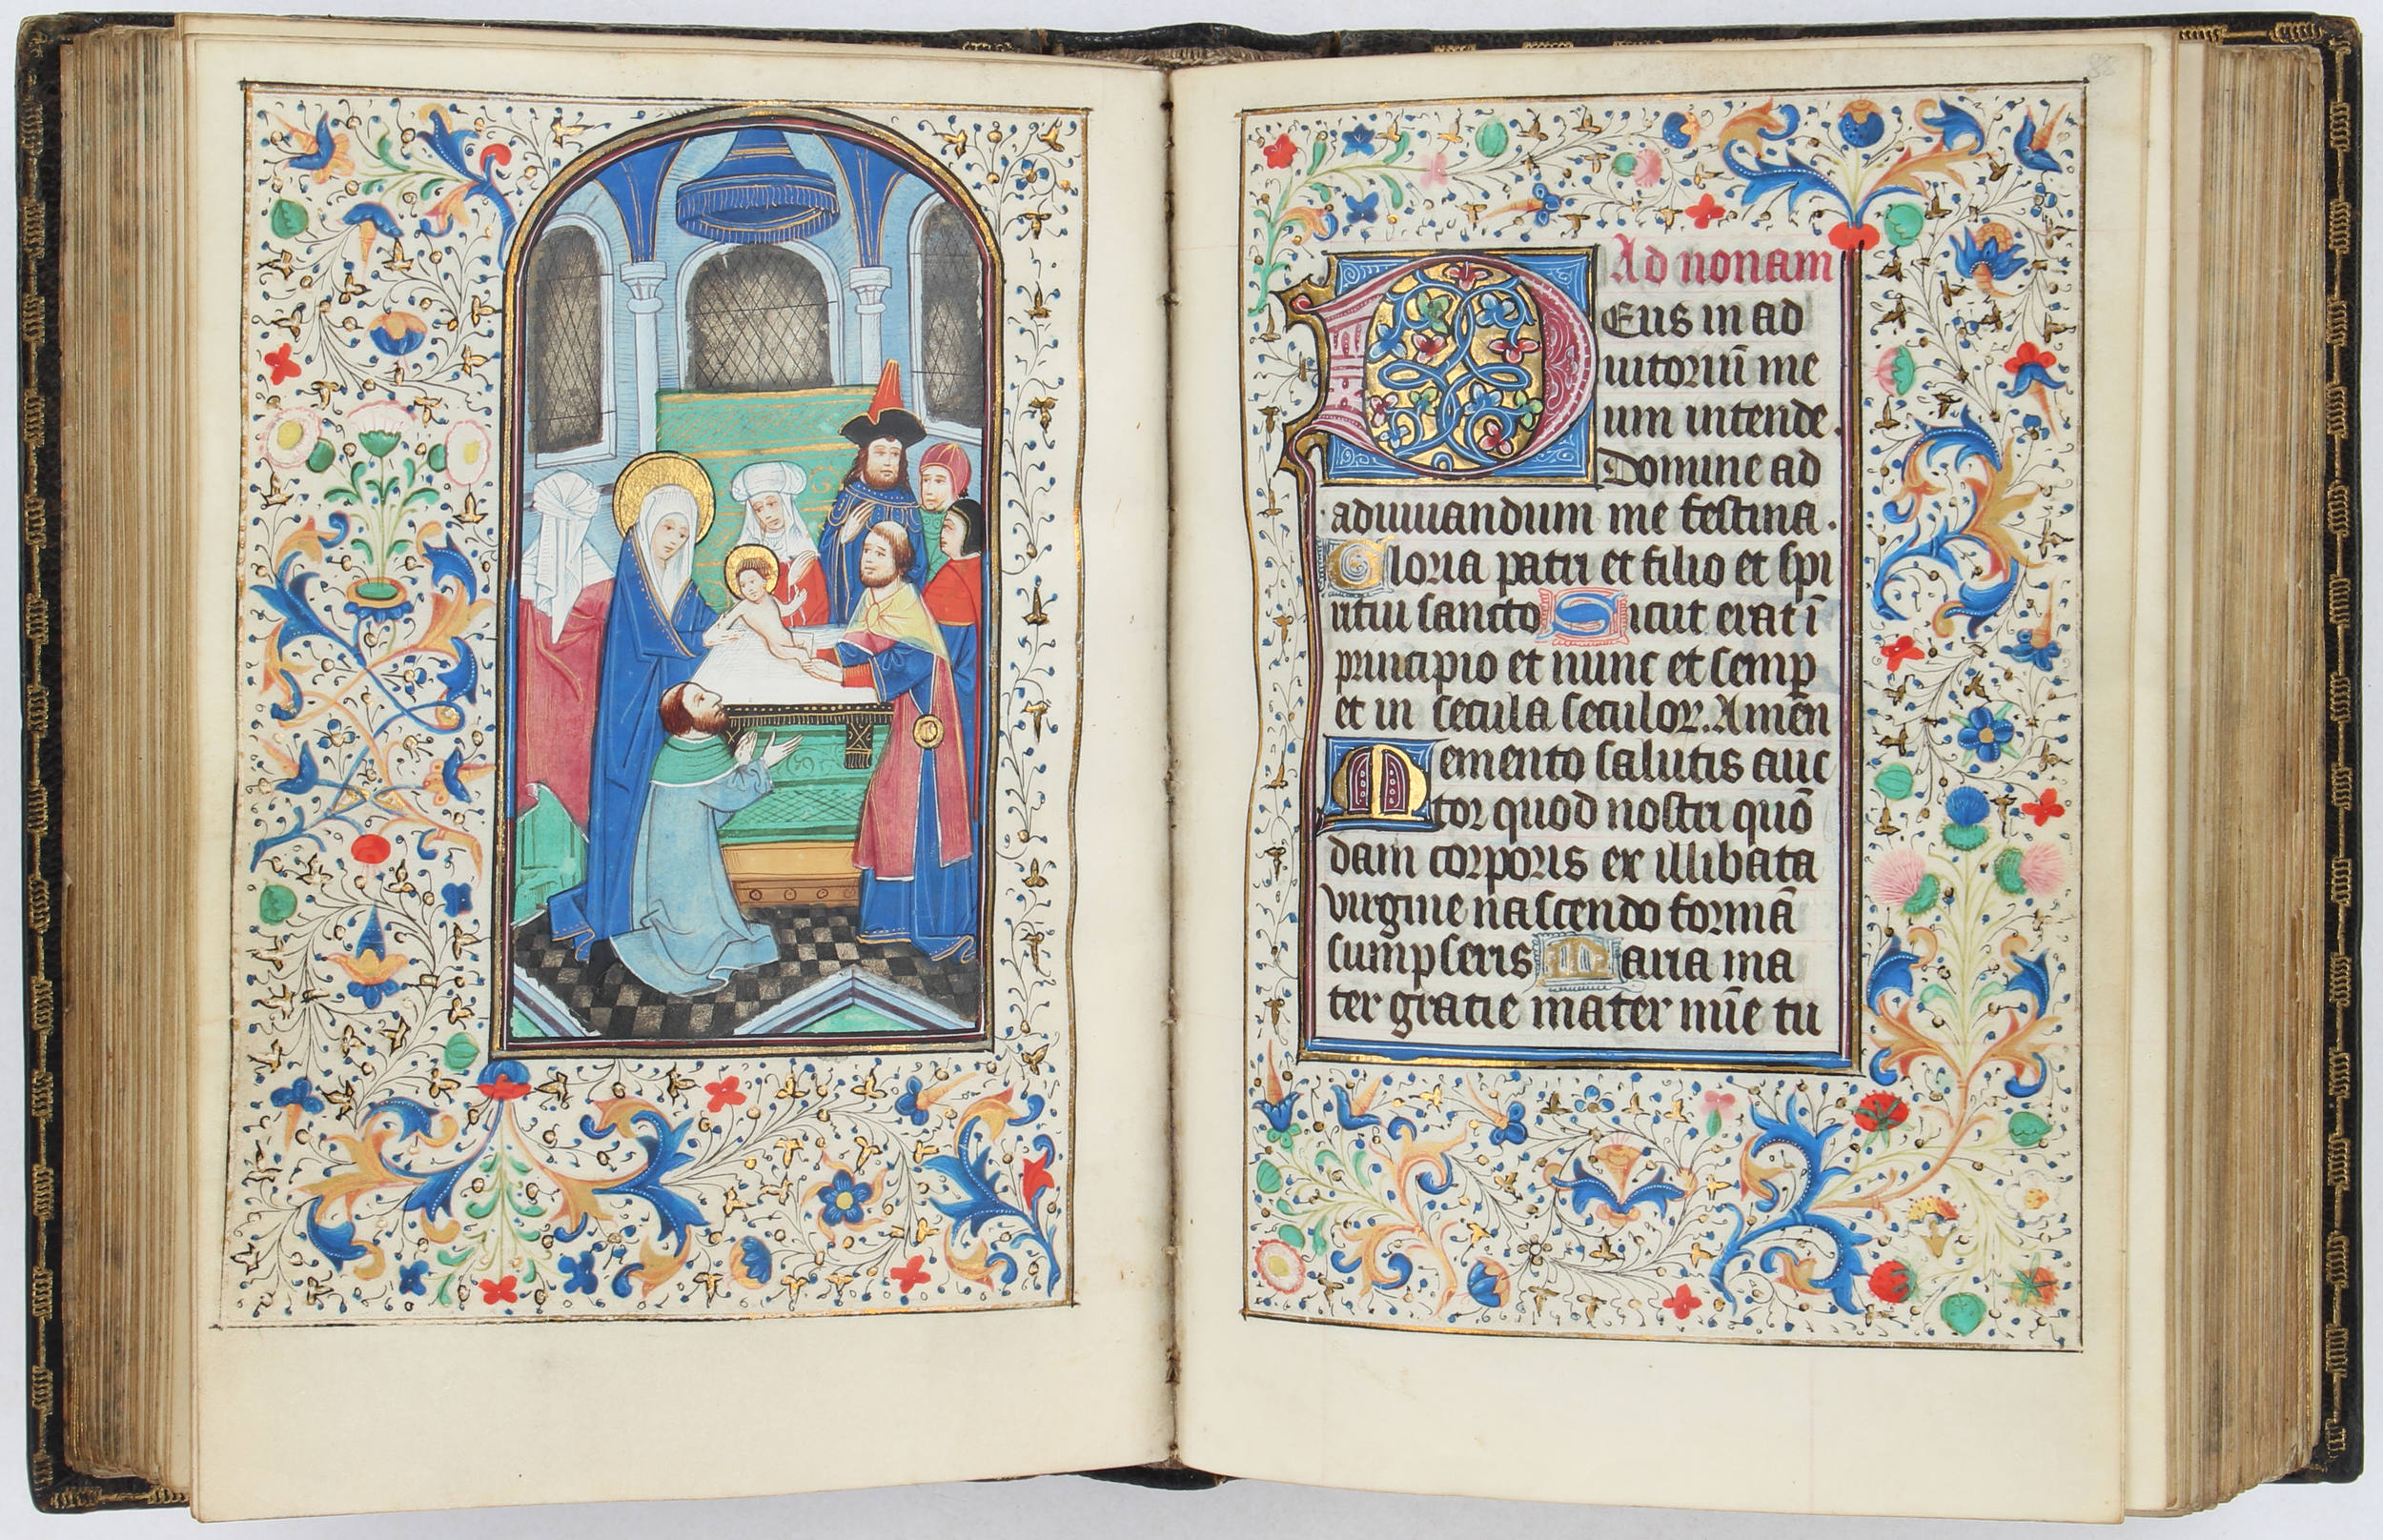 Ad nonam
DEus in ad
iutoriū me
um intende.
Domine ad
adiuuandum me festina.
Gloria patri et filio et spi
ritui sancto Sicut erat ī
principio et nunc et semp̲
et in secula seculoꝝ. Amen̄
Memento salutis auc
tor quod nostri quō
dam corporis ex illibata
virgine nascendo formā
sumpseris Maria ma
ter gratie mater mīe tu